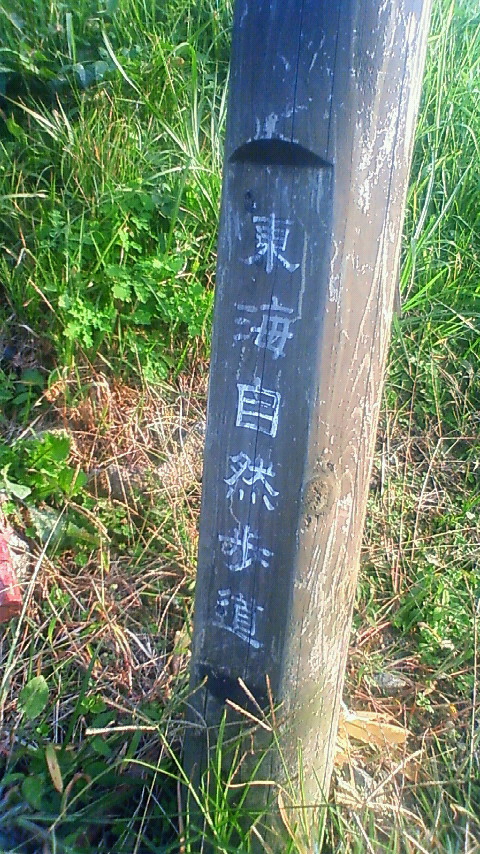 東海自然歩道